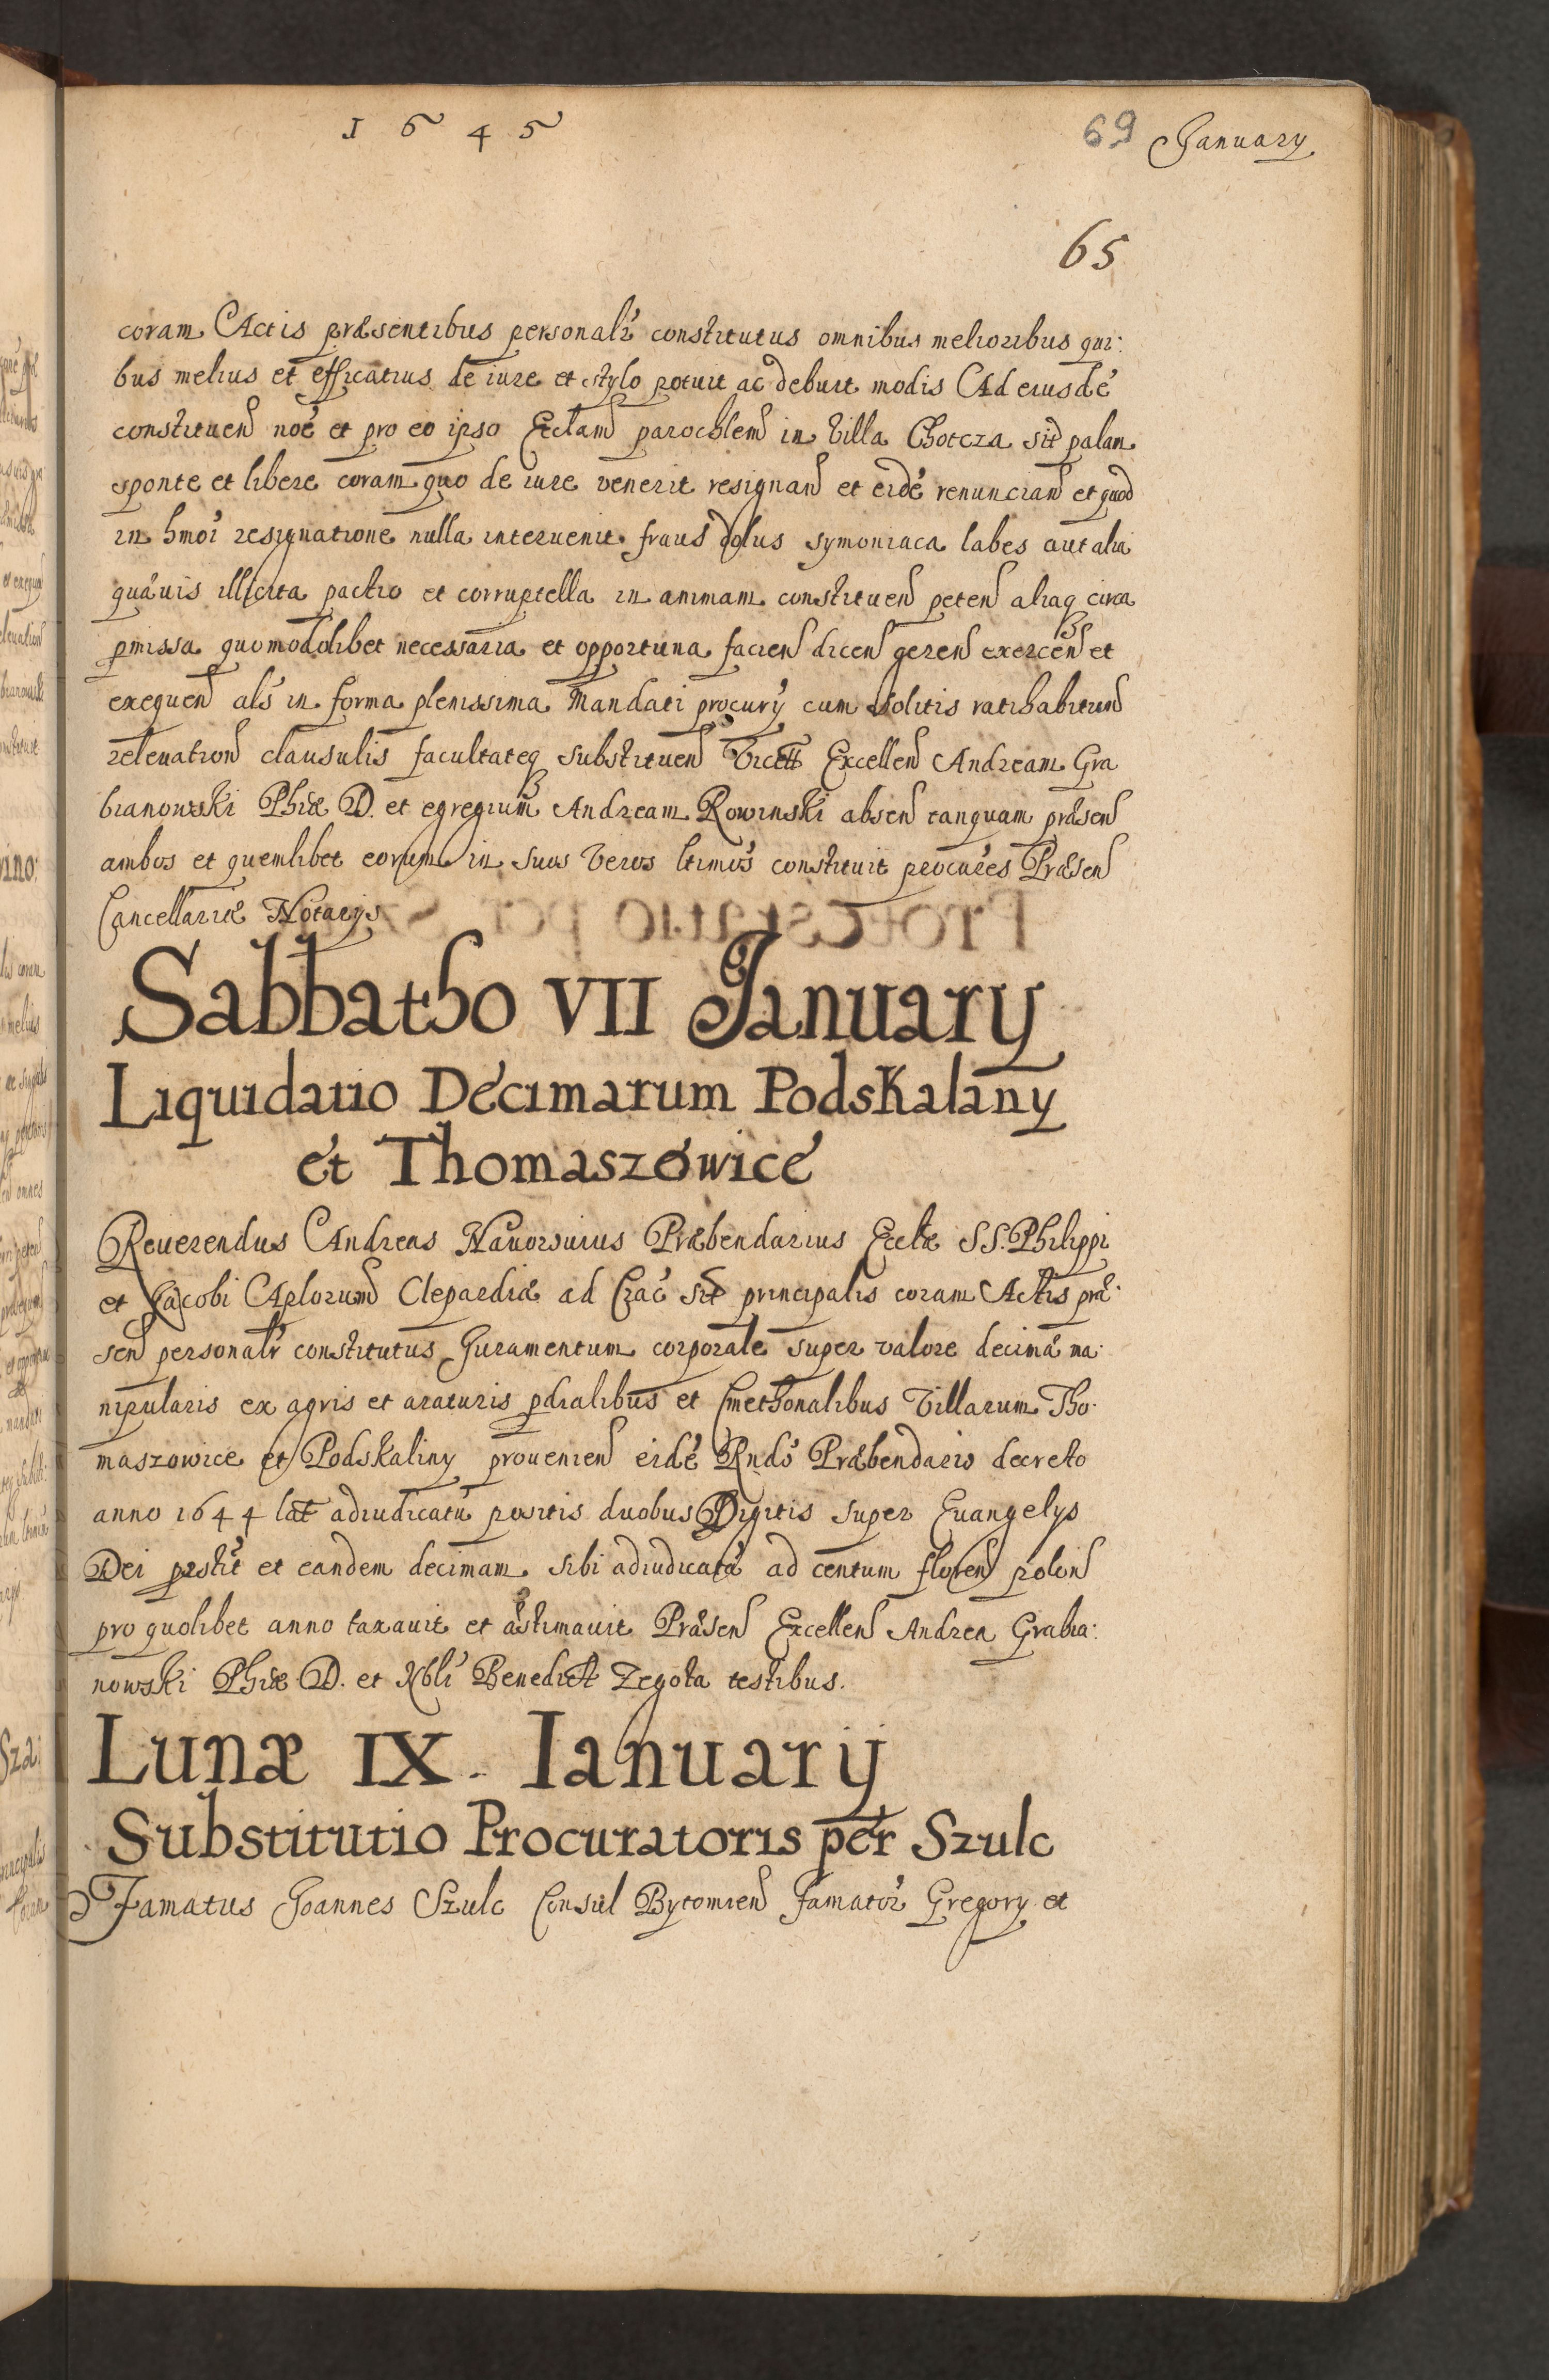 1645
69 January
65
coram Actis præsentibus personalr̃ constitutus omnibus melioribus qui:
bus melius et efficatius de iure et stylo potuit ac debuit modis Ad eiusdẽ
constituen noẽ et pro eo ipso Ecclam parochlem in Villa Chotcza sit palam
sponte et libere coram quo de iure venerit resignan et eidẽ renuncian et quod
in hmoi resignatione nulla interuenit fraus dolus symoniaca labes aut alia
quãuis illicita pactio et corruptella in animam constituen peten aliaq circa
pmissa quomodolibet necessaria et opportuna facien dicen geren exercen et
exequen als in forma plenissima Mandati procurÿ cum solitis ratihabitium
releuation clausulis facultateq substituen Excellen Andream Gra
bianowski Phiæ D. et egregium Andream Rowinski absen tanquam præsen
ambos et quemlibet eorum in suos veros ltimos constituit procures Præsen
Cancellariæ Notarys
Sabbatho VII January
Liquidatio Decimarum Podskalany
et Thomaszowice
Reuerendus Andreas Nauorsuius Præbendarius Ecclæ SS. Philippi
et Jacobi Aplorum Clepardiæ ad Crac̃ sit principalis coram Actis præ:
sen personalr̃ constitutus Juramentum corporale super valore decimæ ma:
nipularis ex agris et araturis pdialibus et Cmethonalibus Villarum Tho:
maszowice et Podskaliny prouenien eidẽ Rndo Præbendario decreto
anno 1644 lat adiudicatũ positis duobus Digitis super Euangelys
Dei pstit et eandem decimam sibi adiudicatã ad centum floren polon
pro quolibet anno taxauit et æstimauit Præsen Excellen Andrea Grabia:
nowski Phiæ D. et Nbli Benedict Zegota testibus.
Lunæ IX. Ianuarÿ
Substitutio Procuratoris per Szulc
Famatus Joannes Szulc Consul Bytomien Famator̃ Gregory et